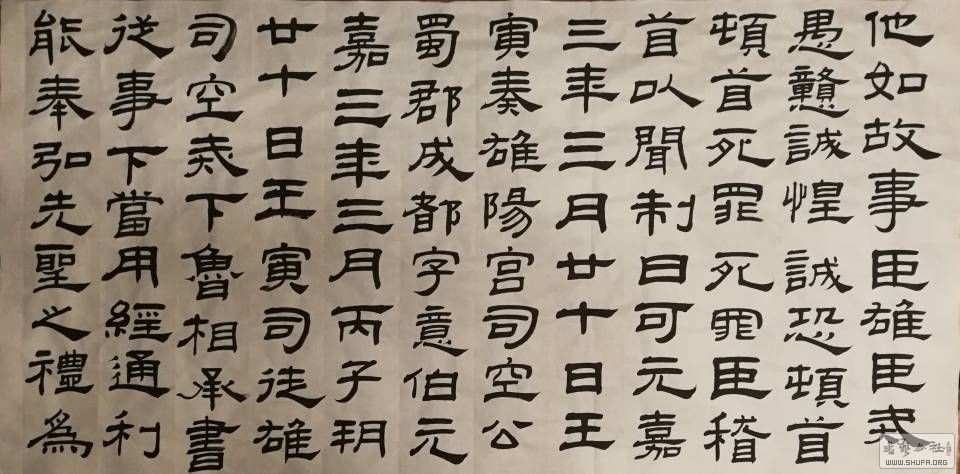 他如故事臣雄臣戒
愚戇誠惶誠恐頓首
頓首死罪死罪臣稽
首以聞制曰可元嘉
三年三月廿七日壬
寅奏雒陽宮司空公
蜀郡成都字意伯元
嘉三年三月丙子朔
廿七日壬寅司徒雄
司空戒下魯相承書
從事下當用經通利
能奉弘先聖之禮為
WWW.SHUFA.ORG